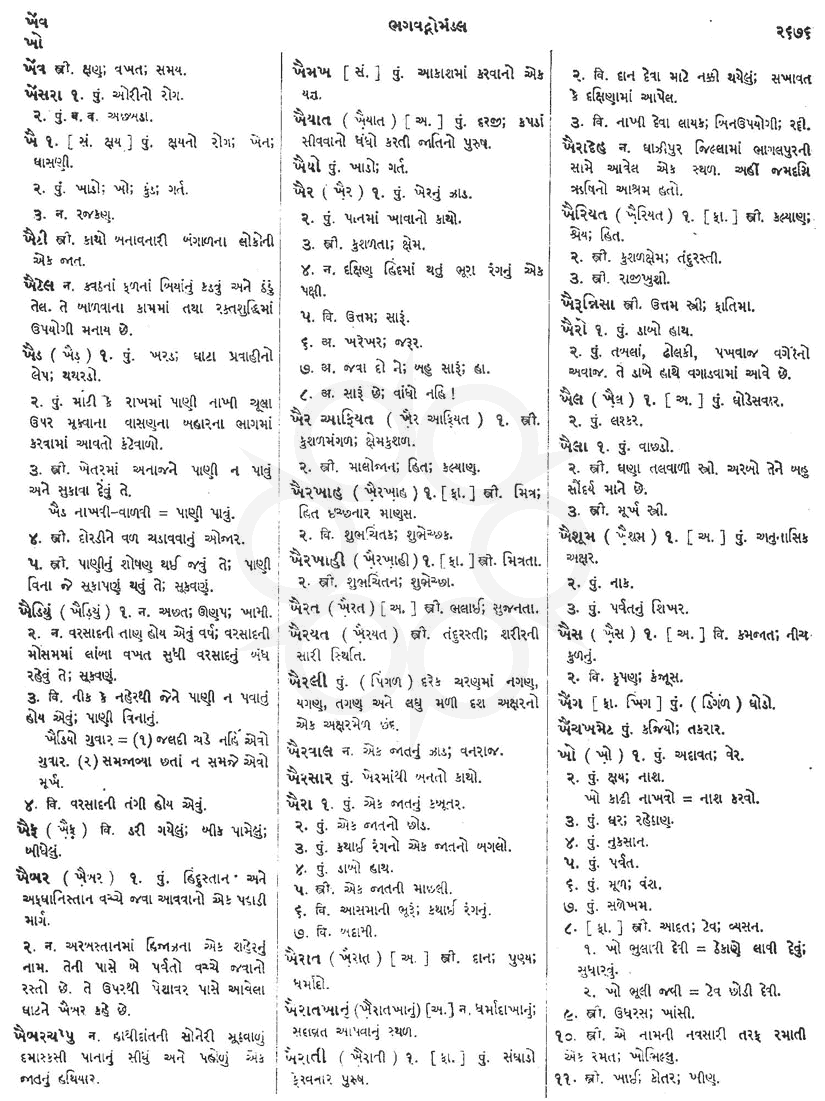 ખેંવ
ખો
ભગવદ્ગોમંડલ
૨૬૭૬
ખેંવ સ્ત્રી. ક્ષણ; વખત; સમય.
ખેંસરા ૧. પું. ઓરીનો રોગ.
૨. પું. બ. વ. અછબડા.
ખૈ ૧. [ સં. ક્ષય ] પું. ક્ષયનો રોગ; ખેન;
ઘાસણી.
૨. પું. ખાડો; ખો; કુંડ; ગર્ત.
૩. ન. રજકણ.
ખૈટી સ્ત્રી. કાથો બનાવનારી બંગાળના લોકોની
એક જાત.
ખૈટેલ ન. કવઠનાં ફળનાં બિયાંનું કડવું અને ઠંડું
તેલ. તે બાળવાના કામમાં તથા રક્તશુદ્ધિમાં
ઉપયોગી મનાય છે.
ખૈડ ( ખૈ઼ડ ) ૧. પું. ખરડ; ઘાટા પ્રવાહીનો
લેપ; થથરડો.
૨. પું. માટી કે રાખમાં પાણી નાખી ચૂલા
ઉપર મૂકવાના વાસણના બહારના ભાગમાં
કરવામાં આવતો કંટેવાળો.
૩. સ્ત્રી. ખેતરમાં અનાજને પાણી ન પાવું
અને સુકાવા દેવું તે.
ખૈડ નાખવી-વાળવી = પાણી પાવું.
૪. સ્ત્રી. દોરડીને વળ ચડાવવાનું ઓજાર.
૫. સ્ત્રી. પાણીનું શોષણ થઈ જવું તે; પાણી
વિના જે સૂકાપણું થવું તે; સૂકવણું.
ખૈડિયું ( ખૈ઼ડિયું ) ૧. ન. અછત; ઊણપ; ખામી.
૨. ન. વરસાદની તાણ હોય એવું વર્ષ; વરસાદની
મોસમમાં લાંબા વખત સુધી વરસાદનું બંધ
રહેવું તે; સૂકવણું.
૩. વિ. નીક કે નહેરથી જેને પાણી ન પવાતું
હોય એવું; પાણી વિનાનું.
ખૈડિયો ગુવાર = (૧) જલદી ચડે નહિ એવો
ગુવાર. (૨) સમજાવ્યા છતાં ન સમજે એવો
મૂર્ખ.
૪. વિ. વરસાદની તંગી હોય એવું.
ખૈફ ( ખૈ઼ફ ) વિ. ડરી ગયેલું; બીક પામેલું;
બીધેલું.
ખૈબર ( ખૈ઼બર ) ૧. પું. હિંદુસ્તાન અને
અફઘાનિસ્તાન વચ્ચે જવા આવવાનો એક પહાડી
માર્ગ.
૨. ન. અરબસ્તાનમાં હિજાઝના એક શહેરનું
નામ. તેની પાસે બે પર્વતો વચ્ચે જવાનો
રસ્તો છે. તે ઉપરથી પેશાવર પાસે આવેલા
ઘાટને ખૈબર કહે છે.
ખૈબરચપ્પુ ન. હાથીદાંતની સોનેરી મૂઠવાળું
દમાસ્કસી પાનાનું સીધું અને પહોળું એક
જાતનું હથિયાર.
ખૈમખ [ સં. ] પું. આકાશમાં કરવાનો એક
યજ્ઞ.
ખૈયાત ( ખ઼ૈયાત ) [ અ. ] પું. દરજી; કપડાં
સીવવાનો ધંધો કરતી જાતિનો પુરુષ.
ખૈયો પું. ખાડો; ગર્ત.
ખૈર ( ખ઼ૈર ) ૧. પું. ખેરનું ઝાડ.
૨. પું. પાનમાં ખાવાનો કાથો.
૩. સ્ત્રી. કુશળતા; ક્ષેમ.
૪. ન. દક્ષિણ હિંદમાં થતું ભૂરા રંગનું એક
પક્ષી.
૫. વિ. ઉત્તમ; સારું.
૬. અ. ખરેખર; જરૂર.
૭. અ. જવા દો ને; બહુ સારું; હા.
૮. અ. સારું છે; વાંધો નહિ !
ખૈર આફિયત ( ખ઼ૈર આફિ઼યત ) ૧. સ્ત્રી.
કુશળમંગળ; ક્ષેમકુશળ.
૨. સ્ત્રી. માલોજાન; હિત; કલ્યાણ.
ખૈરખાહ ( ખ઼ૈરખ઼ાહ ) ૧. [ ફા. ] સ્ત્રી. મિત્ર;
હિત ઇચ્છનાર માણસ.
૨. વિ. શુભચિંતક; શુભેચ્છક.
ખૈરખાહી ( ખ઼ૈરખ઼ાહી ) ૧. [ ફા. ] સ્ત્રી. મિત્રતા.
૨. સ્ત્રી. શુભચિંતન; શુભેચ્છા.
ખૈરત ( ખ઼ૈરત ) [ અ. ] સ્ત્રી. ભલાઈ; સુજનતા.
ખૈરયત ( ખ઼ૈરયત ) સ્ત્રી. તંદુરસ્તી; શરીરની
સારી સ્થિતિ.
ખૈરલી પું. ( પિંગળ ) દરેક ચરણમાં નગણ,
યગણ, તગણ અને લઘુ મળી દશ અક્ષરનો
એક અક્ષરમેળ છંદ.
ખૈરવાલ ન. એક જાતનું ઝાડ; વનરાજ.
ખૈરસાર પું. ખેરમાંથી બનતો કાથો.
ખૈરા ૧. પું. એક જાતનું કબૂતર.
૨. પું. એક જાતનો છોડ.
૩. પું. કથાઈ રંગનો એક જાતનો બગલો.
૪. પું. ડાબો હાથ.
૫. સ્ત્રી. એક જાતની માછલી.
૬. વિ. આસમાની ભૂરું; કથાઈ રંગનું.
૭. વિ. બદામી.
ખૈરાત ( ખ઼ૈરાત ) [ અ. ] સ્ત્રી. દાન; પુણ્ય;
ધર્માદો.
ખૈરાતખાનું ( ખ઼ૈરાતખાનું ) [અ.] ન. ધર્માદાખાનું;
સદાવ્રત આપવાનું સ્થળ.
ખૈરાતી ( ખ઼ૈરાતી ) ૧. [ ફા. ] પું. સંઘાડો
ફેરવનાર પુરુષ.
૨. વિ. દાન દેવા માટે નક્કી થયેલું; સખાવત
કે દક્ષિણામાં આપેલ.
૩. વિ. નાખી દેવા લાયક; બિનઉપયોગી; રદ્દી.
ખૈરાદેહુ ન. ઘાઝીપુર જિલ્લામાં ભાગલપુરની
સામે આવેલ એક સ્થળ. અહીં જમદગ્નિ
ઋષિનો આશ્રમ હતો.
ખૈરિયત ( ખ઼ૈરિયત ) ૧. [ ફા. ] સ્ત્રી. કલ્યાણ;
શ્રેય; હિત.
૨. સ્ત્રી. કુશળક્ષેમ; તંદુરસ્તી.
૩. સ્ત્રી. રાજીખુશી.
ખૈરુન્નિસા સ્ત્રી. ઉત્તમ સ્ત્રી; ફાતિમા.
ખૈરો ૧. પું. ડાબો હાથ.
૨. પું. તબલાં, ઢોલકી, પખવાજ વગેરેનો
અવાજ. તે ડાબે હાથે વગાડવામાં આવે છે.
ખૈલ ( ખ઼ૈલ ) ૧. [ અ. ] પું. ઘોડેસવાર.
૨. પું. લશ્કર.
ખૈલા ૧. પું. વાછડો.
૨. સ્ત્રી. ઘણા તલવાળી સ્ત્રી. અરબો તેને બહુ
સૌંદર્ય માને છે.
૩. સ્ત્રી. મૂર્ખ સ્ત્રી.
ખૈશૂમ ( ખ઼ૈશૂમ ) ૧. [ અ. ] પું. અનુનાસિક
અક્ષર.
૨. પું. નાક.
૩. પું. પર્વતનું શિખર.
ખૈસ ( ખ઼ૈસ ) ૧. [ અ. ] વિ. કમજાત; નીચ
કુળનું.
૨. વિ. કૃપણ; કંજૂસ.
ખૈંગ [ ફા. ખિંગ ] પું. ( ડિંગળ ) ઘોડો.
ખૈંચખમેટ પું. કજિયો; તકરાર.
ખો ( ખ઼ો ) ૧. પું. અદાવત; વેર.
૨. પું. ક્ષય; નાશ.
ખો કાઢી નાખવો = નાશ કરવો.
૩. પું. ઘર; રહેઠાણ.
૪. પું. નુકસાન.
૫. પું. પર્વત.
૬. પું. મૂળ; વંશ.
૭. પું. સળેખમ.
૮. [ ફા. ] સ્ત્રી. આદત; ટેવ; વ્યસન.
૧. ખો ભુલાવી દેવી = ઠેકાણે લાવી દેવું;
સુધારવું.
૨. ખો ભૂલી જવી = ટેવ છોડી દેવી.
૯. સ્ત્રી. ઉધરસ; ખાંસી.
૧૦. સ્ત્રી. એ નામની નવસારી તરફ રમાતી
એક રમત; ખોબિલ્લુ.
૧૧. સ્ત્રી. ખાઈ; કોતર; ખીણ.